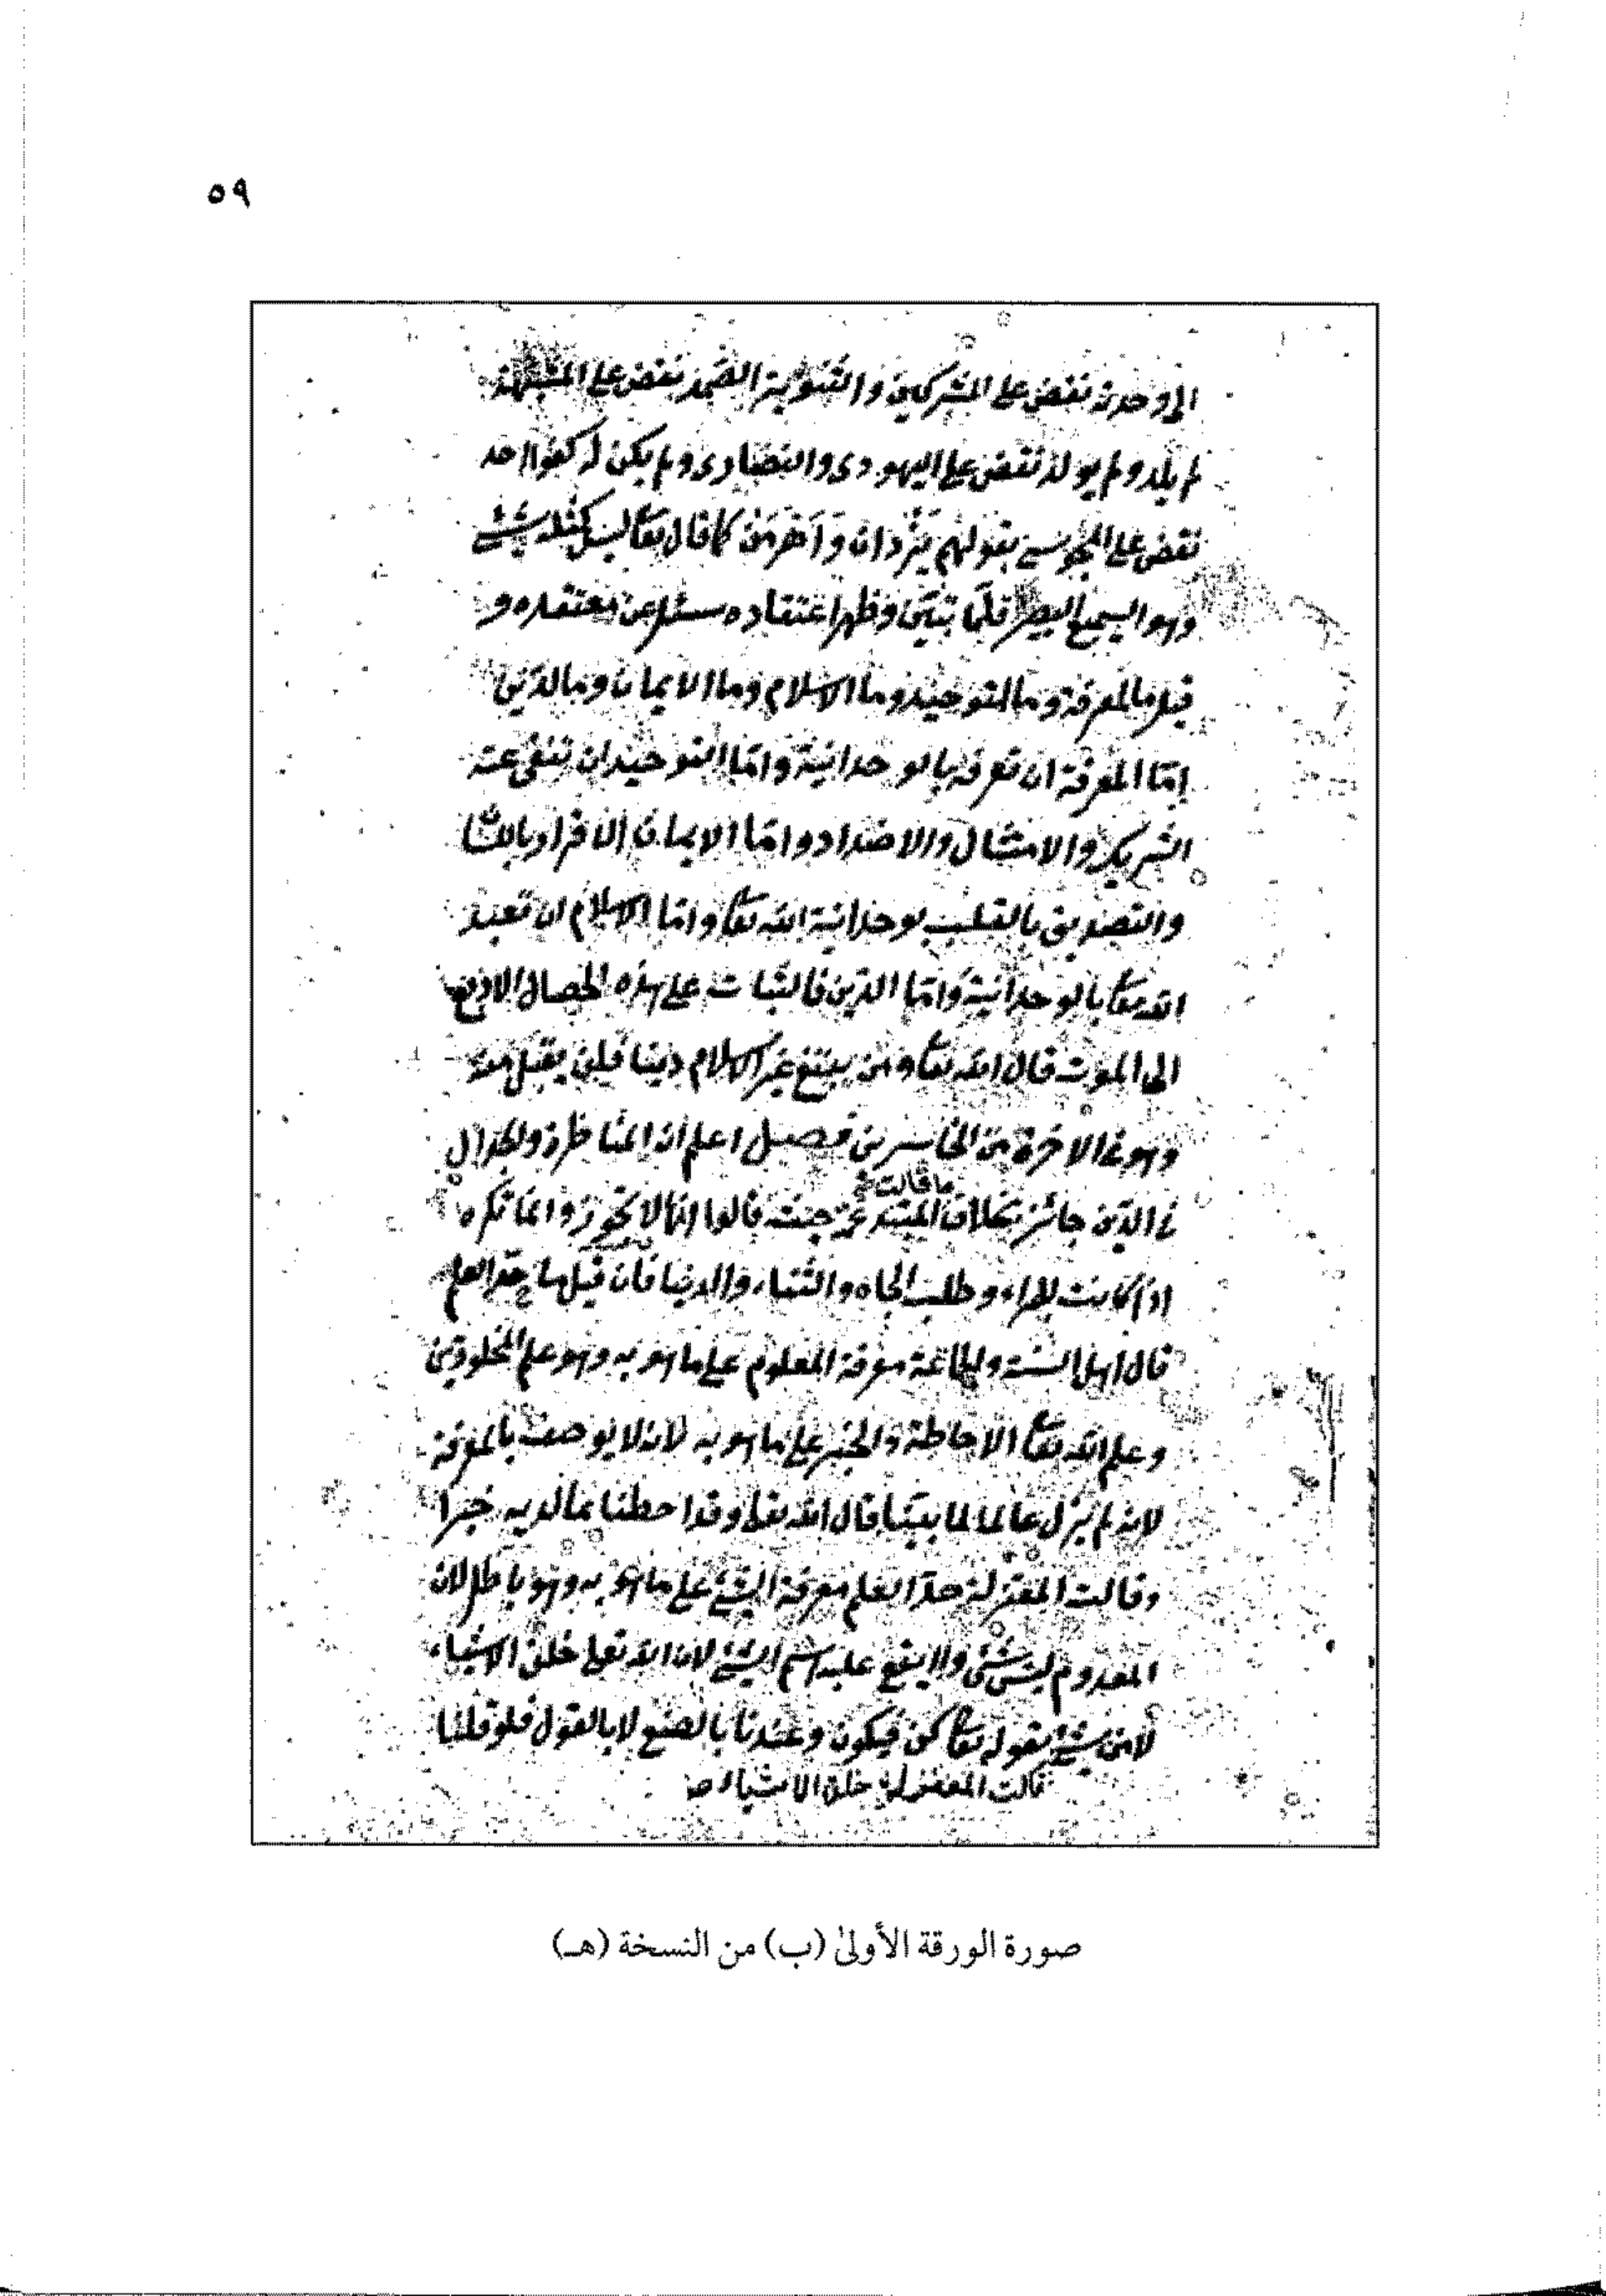 ٥٩
الى وحده نقض على المشركين والثنوية الصمد نقض على المشبهة
لم يلد ولم يولد نقض على اليهودى والنصارى ولم يكن له كفوا احد
نقض على المجوسى بقولهم يزدان وآهرمن كما قال تعا ليس كمثله شئ
وهو السميع البصير فلما تبين وظهر اعتقاده سئل عن معتقده و
قيل ما المعرفة وما التوحيد وما الاسلام وما الايمان وما الدين
اما المعرفة ان تعرفه بالوحدانية واما التوحيد ان تنفى عنه
الشريك والامثال والاضداد واما الايمان الاقرار باللسا
والتصديق بالقلب بوحدانية الله تعا واما الاسلام ان تعبد
الله تعا بالوحدانية واما الدين فالثبات على هذه الخصال الاربع
الى الموت قال الله تعا ومن يبتغ غير الاسلام دينا فلن يقبل منه
وهو فى الاخرة من الخاسرين فصل اعلم ان المناظرة والجدال
ما قالت
فى الدين جائز بخلاف المبتدعة حيث قالوا انها لا تجوز وانما تكره
اذا كانت للمراء وطلب الجاه والثناء والدنيا فان قيل ما حد العلم
قال اهل السنة والجماعة معرفة المعلوم على ما هو به وهو علم المخلوقين
وعلم الله تعا الاحاطة والخبر على ما هو به لانه لا يوصف بالمعرفة
لانه لم يزل عالما لما بينا قال الله تعلى وقد احطنا بما لديه خبرا
وقالت المعتزلة حد العلم معرفة الشئ على ما هو به وهو باطل لان
المعدوم ليس شئ ولا يقع عليه اسم الشئ لان الله تعلى خلق الاشياء
لا من شئ بقوله تعا كن فيكون وعندنا بالصنع لا بالقول فلو قلنا
قالت المعتزلة خلق الاشياء
صورة الورقة الأولىٰ (ب) من النسخة (هـ)